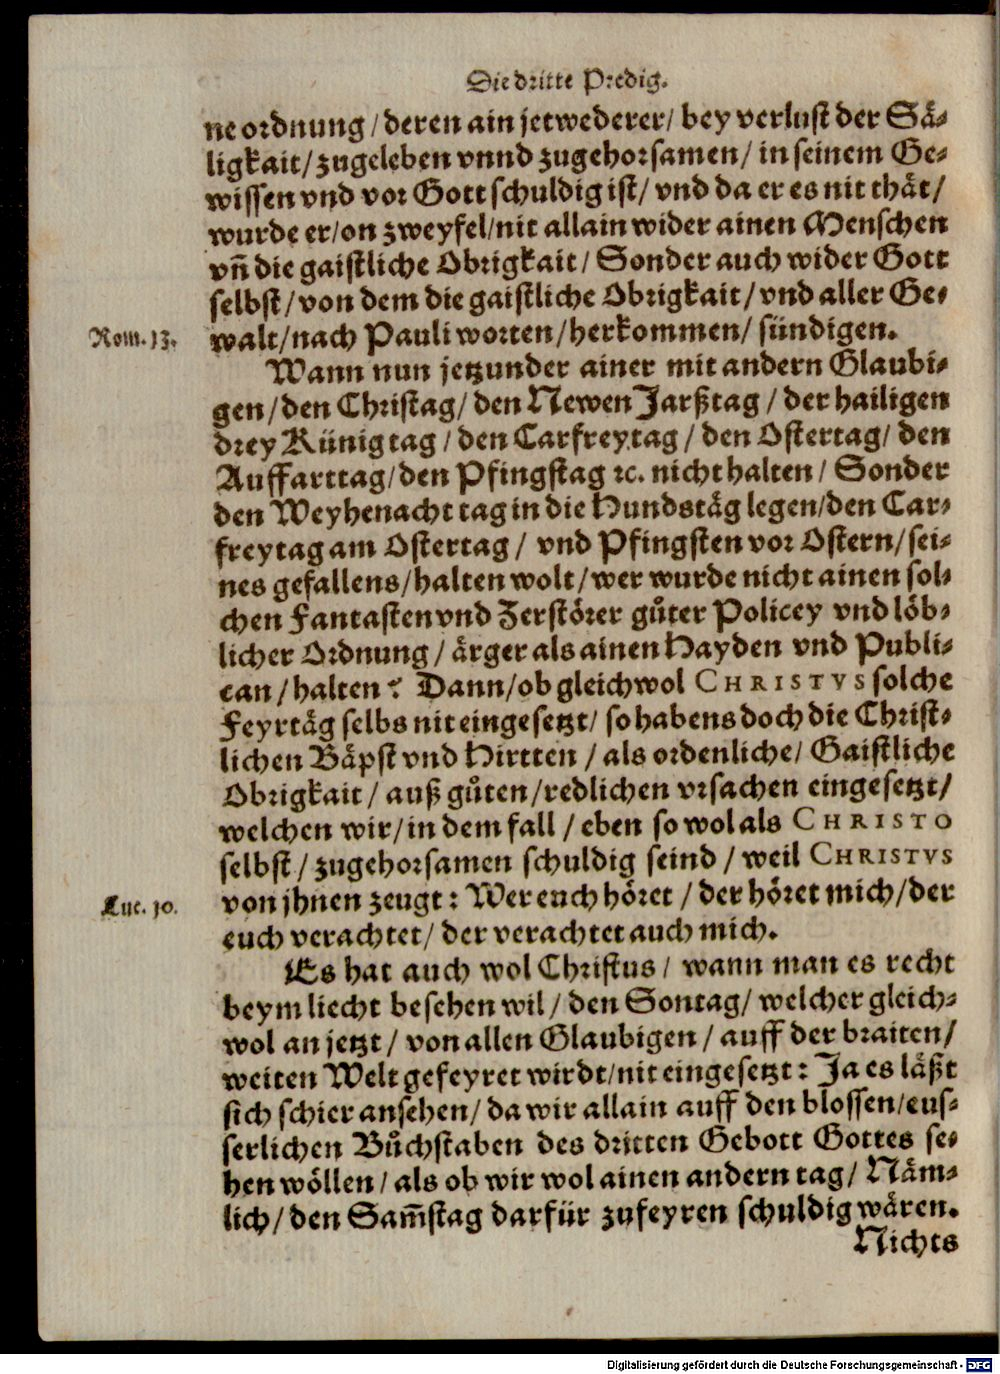 Die dritte Predig.
ne ordnung / deren ain jetwederer / bey verlust der Sä-
ligkait / zugeleben vnnd zugehorsamen / in seinem Ge-
wissen vnd vor Gott schuldig ist / vnd da er es nit thät /
wurde er / on zweyfel / nit allain wider ainen Menschen
vn̄ die gaistliche Obrigkait / Sonder auch wider Gott
selbst / von dem die gaistliche Obrigkait / vnd aller Ge-
Rom. 13. walt / nach Pauli worten / herkommen / sündigen.
Wann nun jetzunder ainer mit andern Glaubi-
gen / den Christag / den Newen Jarßtag / der hailigen
drey Künig tag / den Carfreytag / den Ostertag / den
Auffarttag / den Pfingstag ꝛc. nicht halten / Sonder
den Weyhenacht tag in die Hundstäg legen / den Car-
freytag am Ostertag / vnd Pfingsten vor Ostern / sei-
nes gefallens / halten wolt / wer wurde nicht ainen sol-
chen Fantasten vnd Zerstörer gůter Policey vnd löb-
licher Ordnung / ärger als ainen Hayden vnd Publi-
can / halten? Dann / ob gleichwol CHRISTVS solche
Feyrtäg selbs nit eingesetzt / so habens doch die Christ-
lichen Bäpst vnd Hirtten / als ordenliche / Gaistliche
Obrigkait / auß gůten / redlichen vrsachen eingesetzt /
welchen wir / in dem fall / eben so wol als CHRISTO
selbst / zugehorsamen schuldig seind / weil CHRISTVS
Luc. 10. von jhnen zeugt: Wer euch höret / der höret mich / der
euch verachtet / der verachtet auch mich.
Es hat auch wol Christus / wann man es recht
beym liecht besehen wil / den Sontag / welcher gleich-
wol an jetzt / von allen Glaubigen / auff der braiten /
weiten Welt gefeyret wirdt / nit eingesetzt: Ja es läßt
sich schier ansehen / da wir allain auff den blossen / eus-
serlichen Bůchstaben des dritten Gebott Gottes se-
hen wöllen / als ob wir wol ainen andern tag / Näm-
lich / den Sam̄stag darfür zufeyren schuldig wären.
Nichts
Digitalisierung gefördert durch die Deutsche Forschungsgemeinschaft - DFG